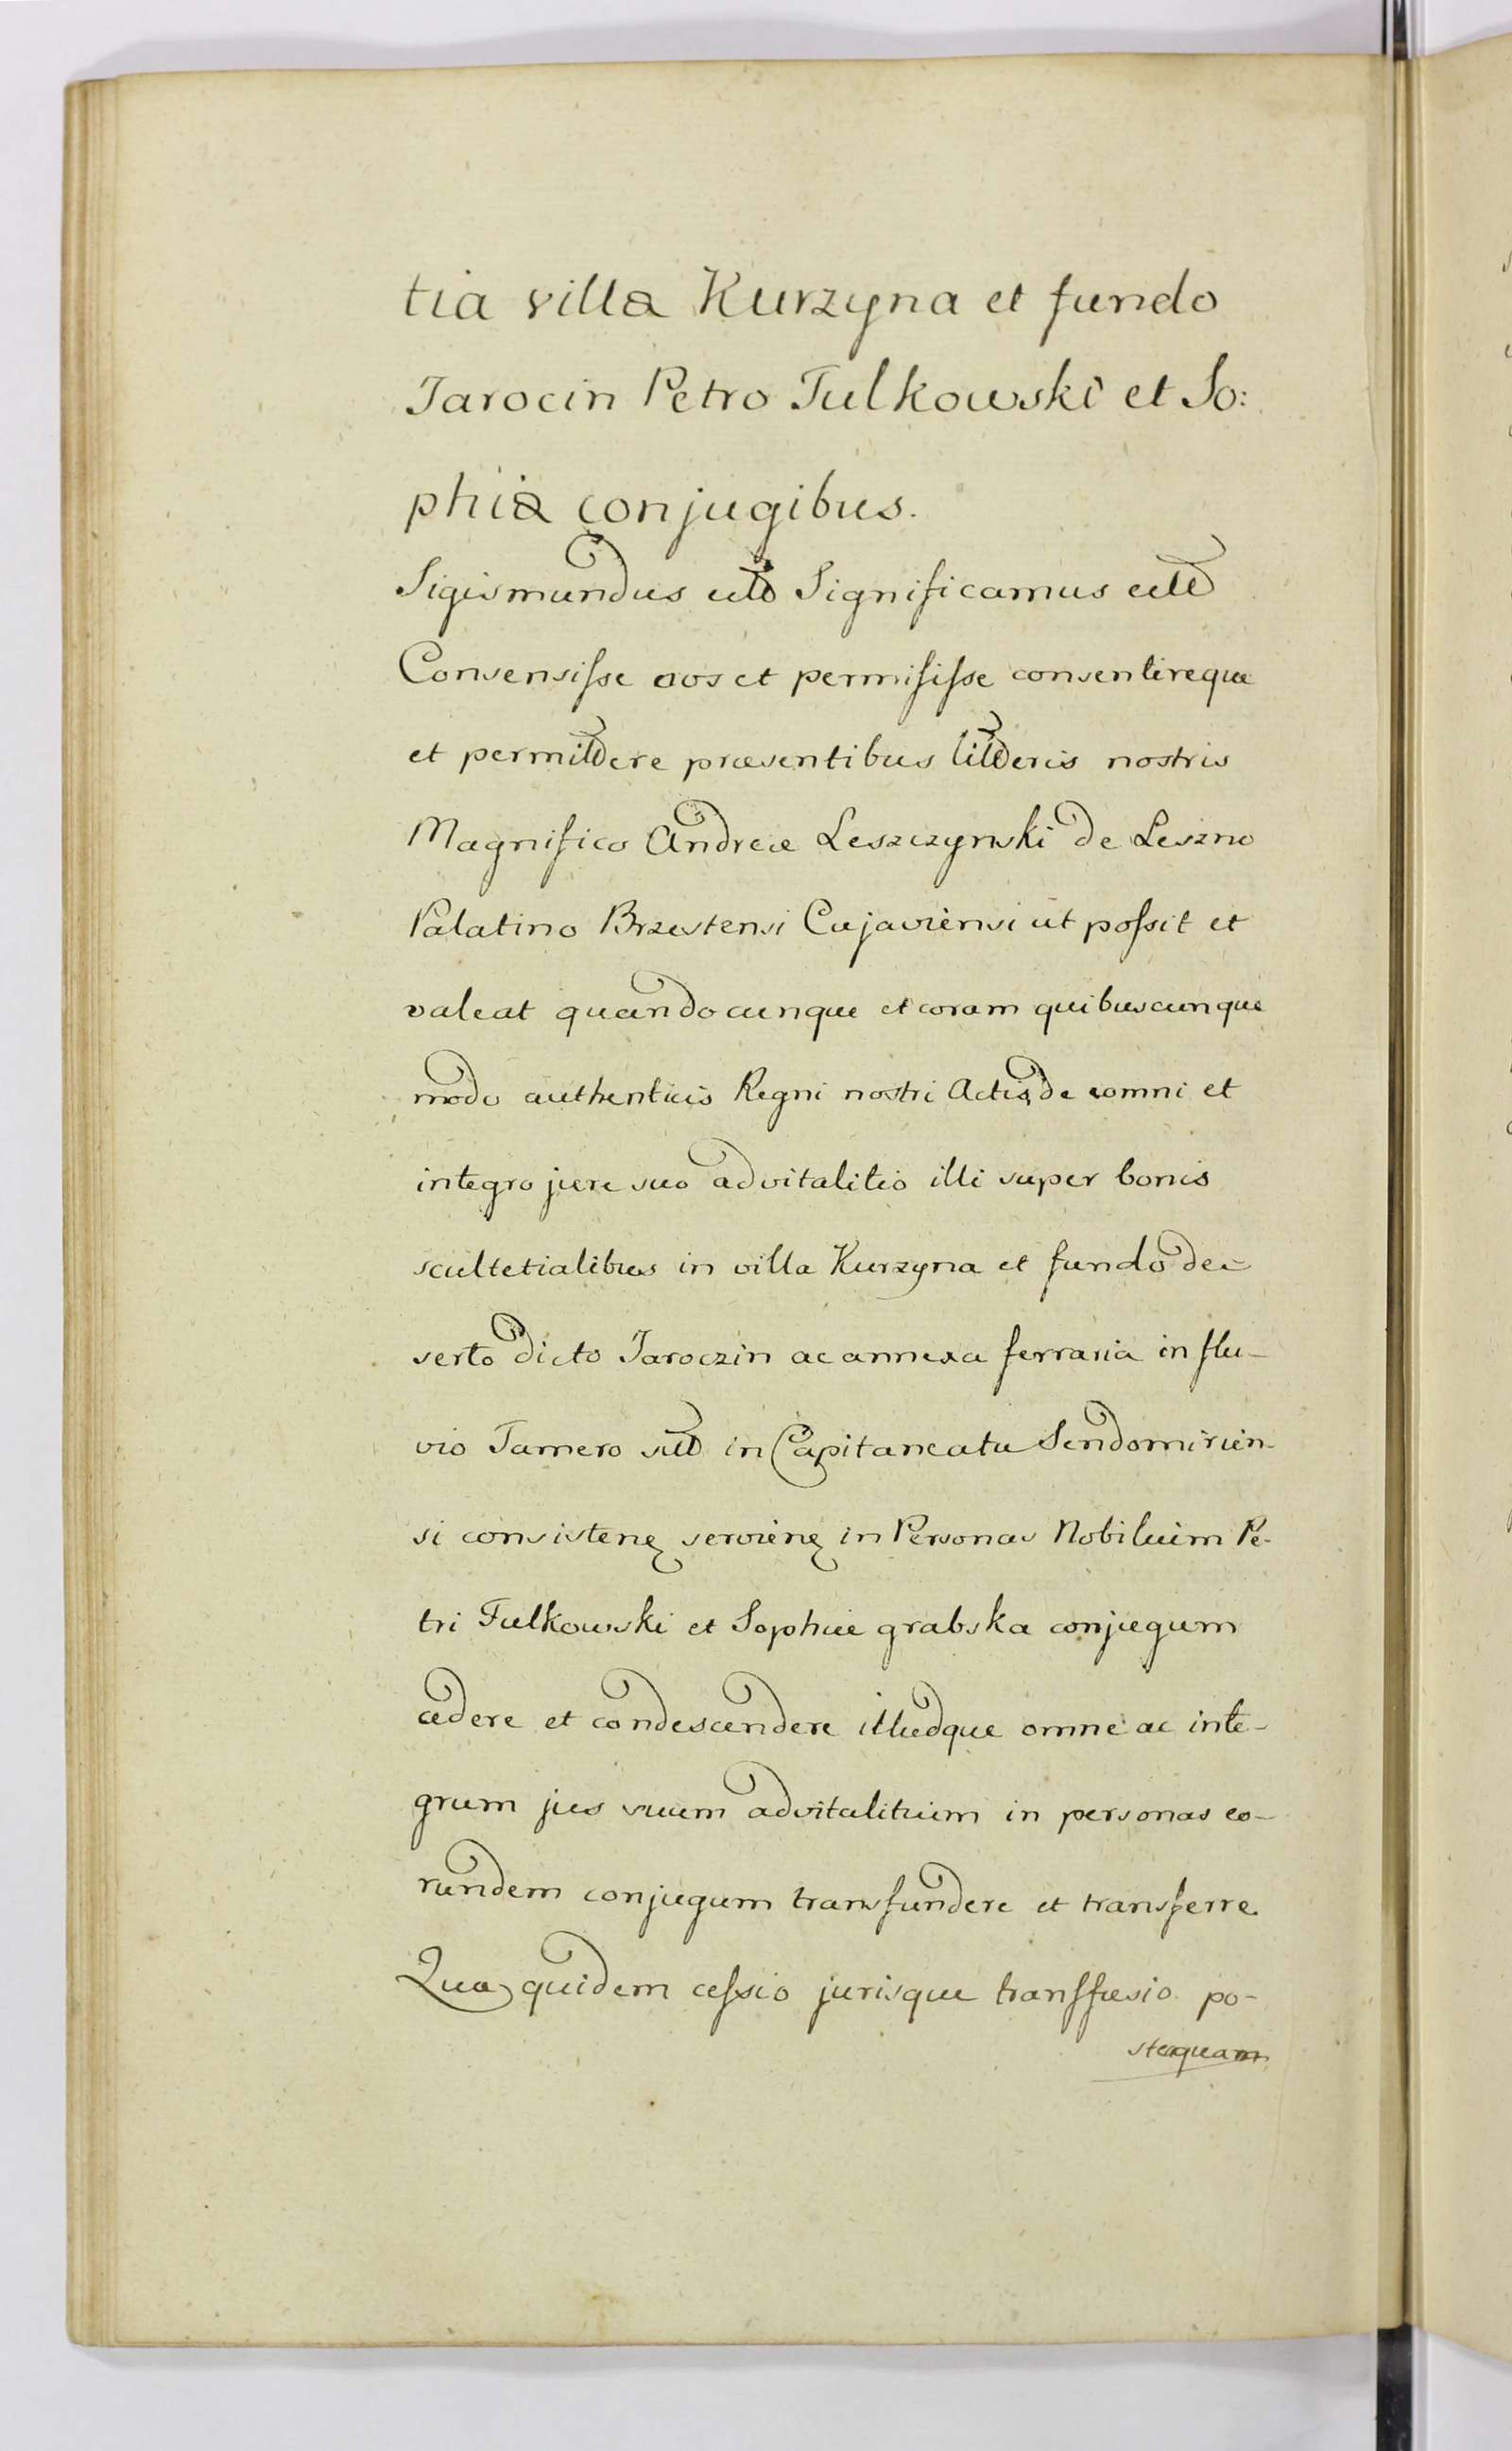 tia villæ Kurzyna et fundo
Jarocin Petro Tulkowski et So:
phiæ conjugibus.
Sigismundus utt Significamus utt
Consensisse nos et permisisse consentireque
et permittere præsentibus litteris nostris
Magnifico Andreæ Leszczynski de Leszno
Palatino Brzestensi Cujaviensi ut possit et
valeat quandocunque et coram quibuscunque
modo authenticis Regni nostri Actis, de omni et
integro jure suo advitalitio illi super bonis
scultetialibus in villa Kurzyna et fundo de-
serto dicto Jaroczin ac annexa ferraria in flu-
vio Tamero sitt in Capitaneatu Sendomirien-
si consisten servien in Personas Nobilium Pe-
tri Tulkowski et Sophiæ grabska conjugum
cedere et condescendere illudque omne ac inte-
grum jus suum advitalitium in personas eo-
rundem conjugum transfundere et transferre.
Quæ quidem cessio jurisque transfusio po-
steaquam